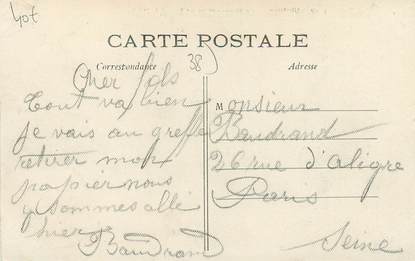 Lot
CARTE POSTALE
38
Correspondance
Adresse
Cher fils
tout va bien
je vais au greffe
retirer mon
papier nous
y sommes allé
hier
Baudrand
Monsieur
Baudrand
26 rue d'Aligre
Paris
Seine